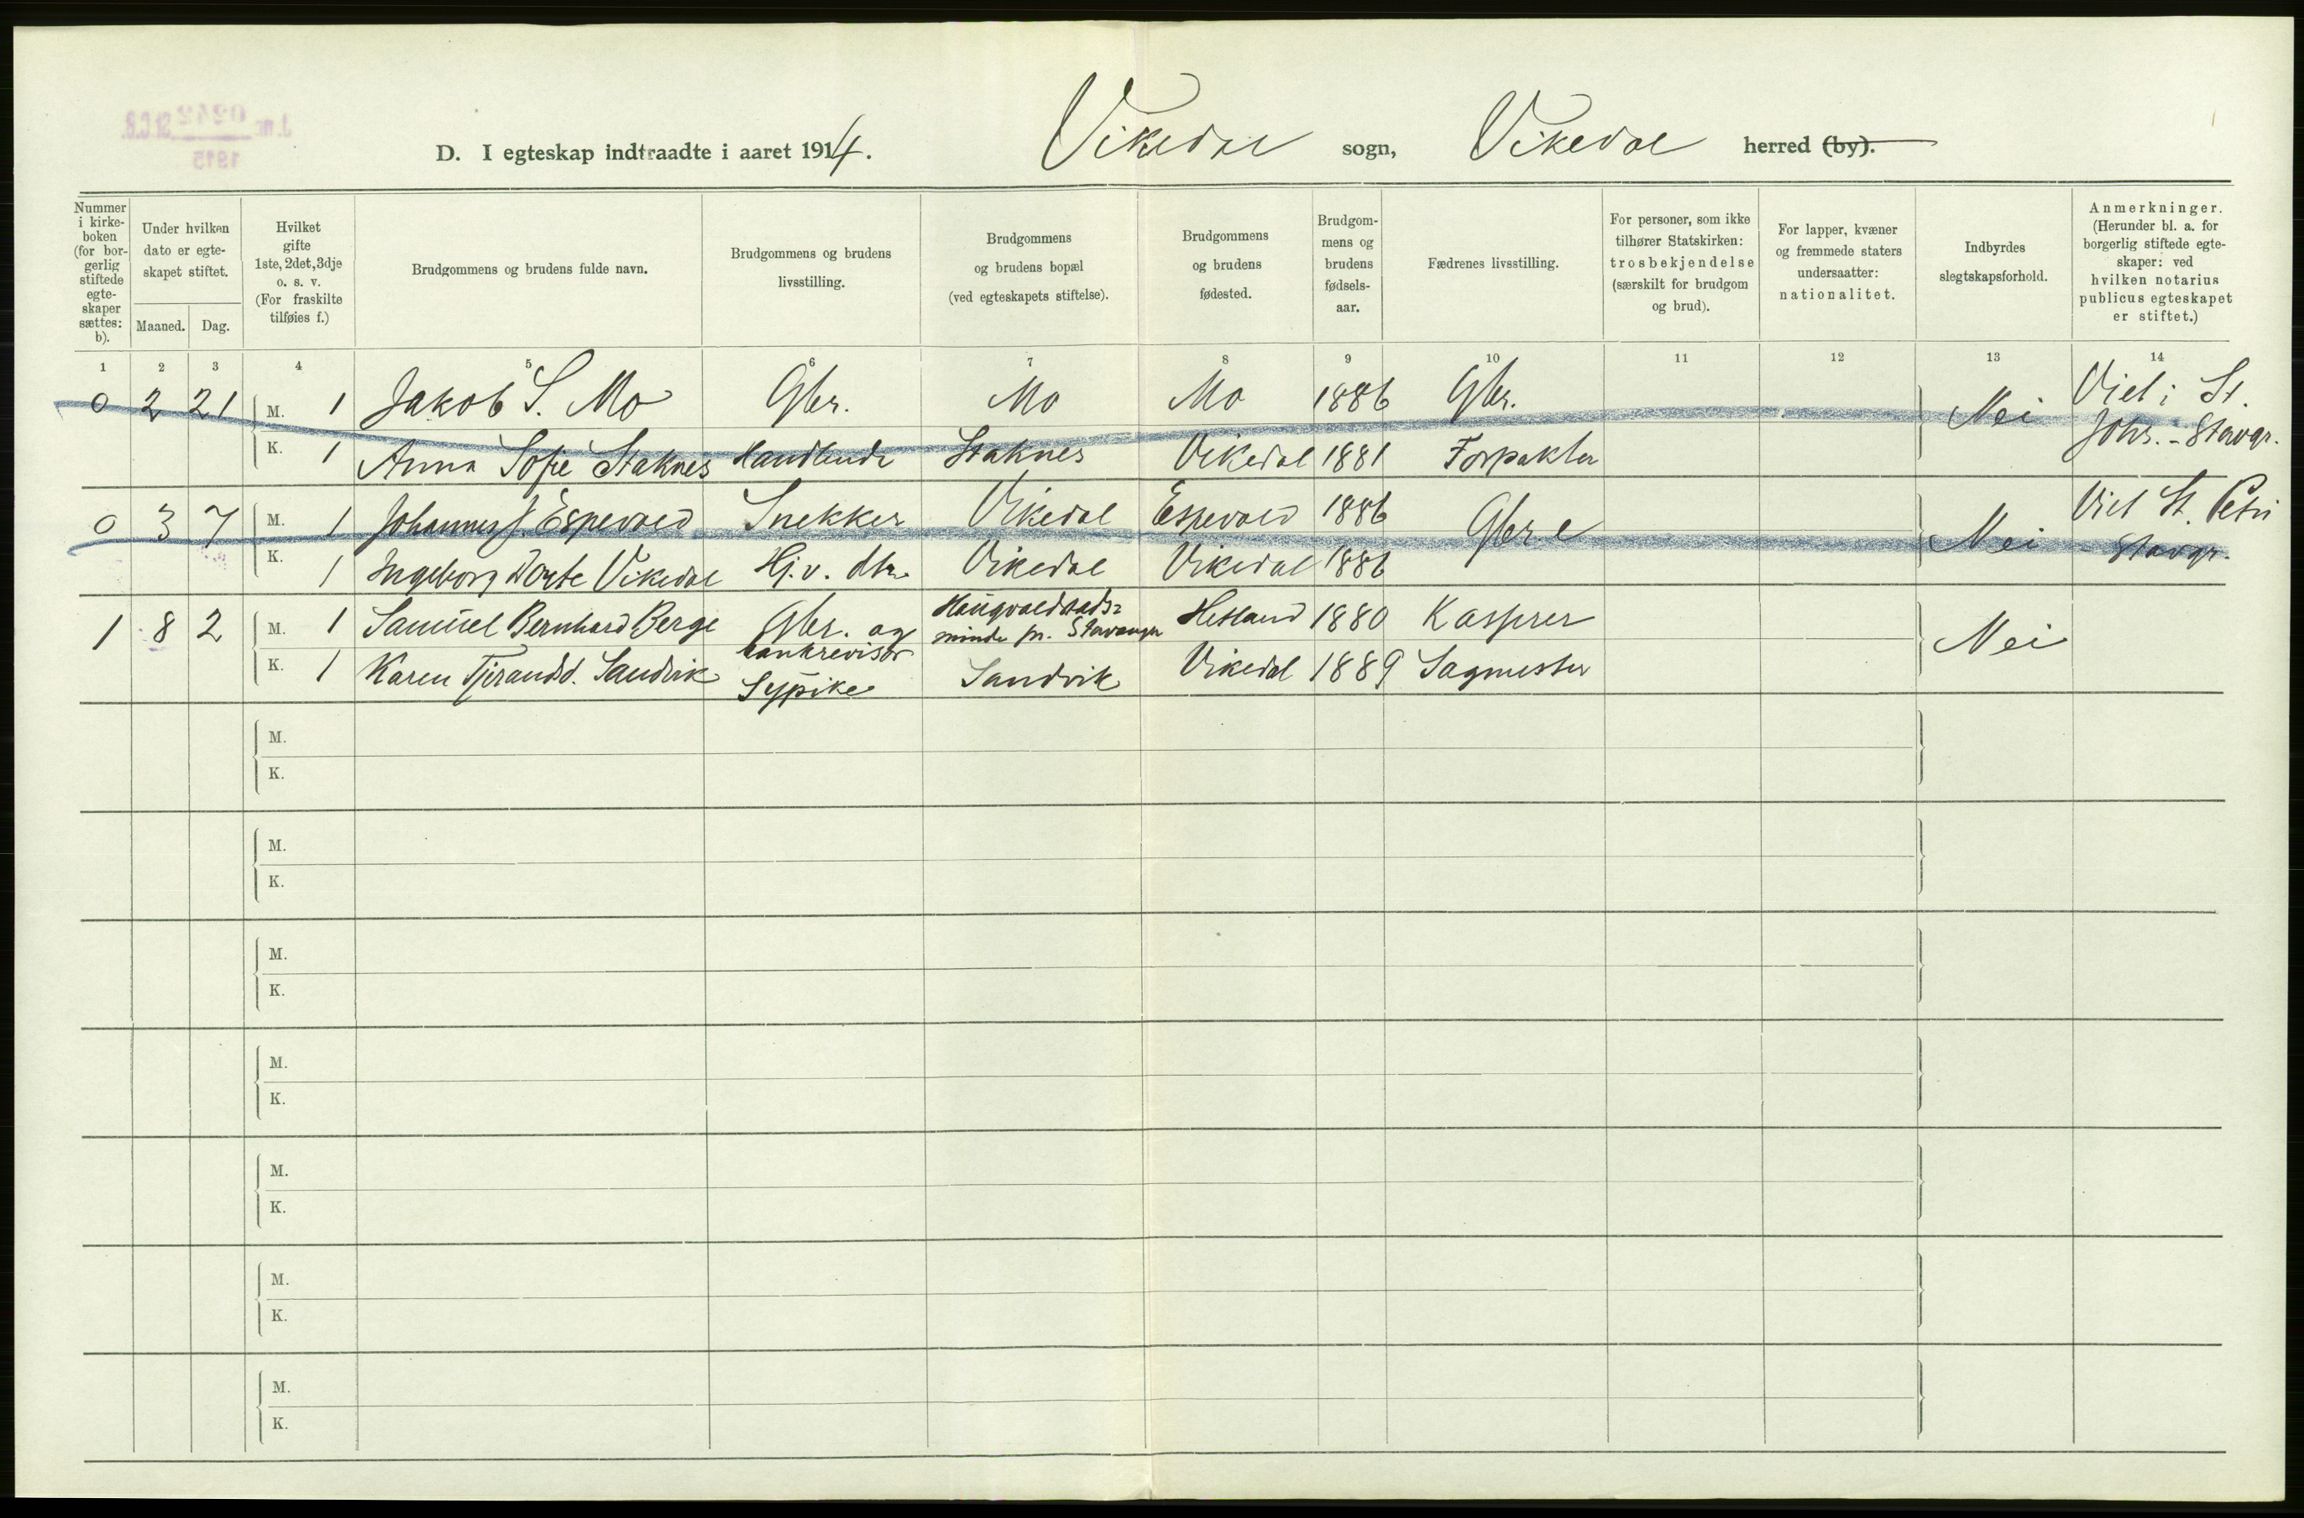 J.no 0242 St.C.B.
1915
D. I egteskap indtraadte i aaret 1914. Vikedal sogn, Vikedal herred (by).
Nummer i kirkeboken (for borgerlig stiftede egteskaper sættes: b).
Under hvilken dato er egteskapet stiftet.
Maaned. Dag.
Hvilket gifte 1ste, 2det, 3dje o. s. v. (For fraskilte tilføies f.)
Brudgommens og brudens fulde navn.
Brudgommens og brudens livsstilling.
Brudgommens og brudens bopæl (ved egteskapets stiftelse).
Brudgommens og brudens fødested.
Brudgommens og brudens fødselsaar.
Fædrenes livsstilling.
For personer, som ikke tilhører Statskirken: trosbekjendelse (særskilt for brudgom og brud).
For lapper, kvæner og fremmede staters undersaatter: nationalitet.
Indbyrdes slegtskapsforhold.
Anmerkninger. (Herunder bl. a. for borgerlig stiftede egteskaper: ved hvilken notarius publicus egteskapet er stiftet.)
1 2 3 4 5 6 7 8 9 10 11 12 13 14
0 2 21 M. 1 Jakob S. Mo Gbr. Mo Mo 1886 Gbr. Nei Viet i St. Johs. - Stavgr.
K. 1 Anna Sofie Staknes Handlende Staknes Vikedal 1881 Forpakter
0 3 7 M. 1 Johannes J. Espevold Snekker Vikedal Espevold 1886 Gbr.e Nei Viet St. Petri Stavgr.
K. 1 Ingeborg Dorte Vikedal Hj.v. dtr. Vikedal Vikedal 1886
1 8 2 M. 1 Samuel Bernhard Berge Gbr. og bankrevisor Haugvaldstadsminde pr. Stavanger Hetland 1880 Kasserer Nei
K. 1 Karen Tjerandsd. Sandvik Sypike Sandvik Vikedal 1889 Sagmester
M.
K.
M.
K.
M.
K.
M.
K.
M.
K.
M.
K.
M.
K.